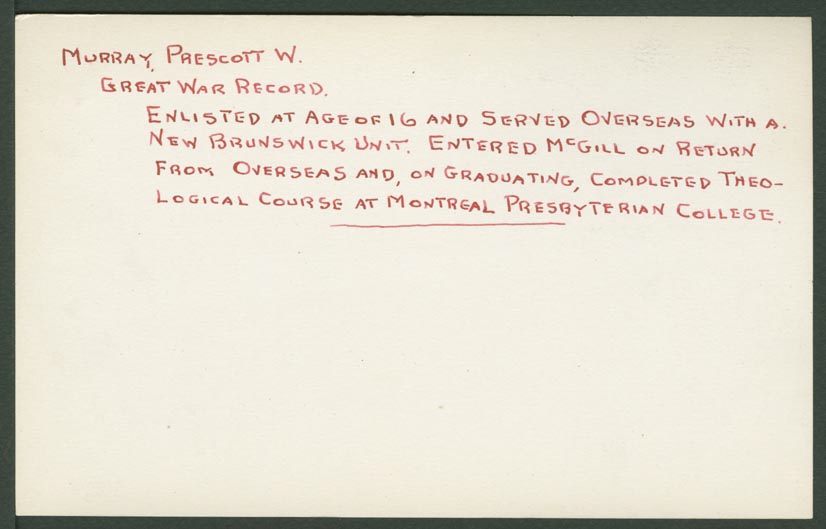 Murray, Prescott W.
Great War Record.
Enlisted at Age of 16 and Served Overseas with a.
New Brunswick Unit. Entered McGill on Return
From Overseas and, on Graduating, Completed Theo-
logical Course at Montreal Presbyterian College.